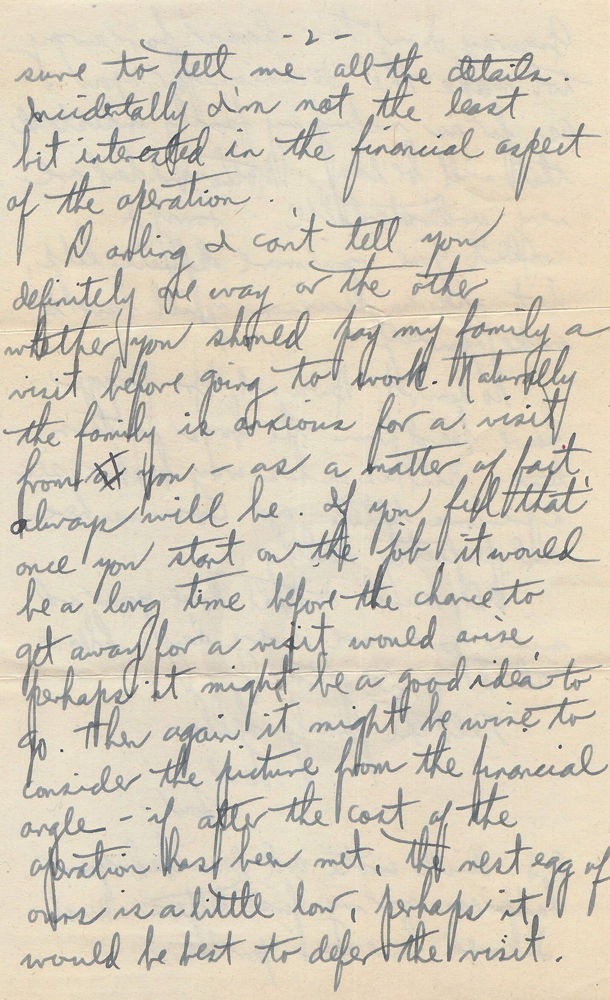 - 2 -
sure to tell me all the details.
Incidentally I'm not the least
bit interested in the financial aspect
of the operation.
Darling I can't tell you
definitely one way or the other
whether you should pay my family a
visit before going to work. Naturally
the family is anxious for a visit
from you - as a matter of fact
always will be. If you feel that
once you start on the job, it would
be a long time before the chance to
get away for a visit would arise,
perhaps it might be a good idea to
go. Then again it might be wise to
consider the picture from the financial
angle - if after the cost of the
operation has been met, the nest egg of
ours is a little low, perhaps it
would be best to defer the visit.